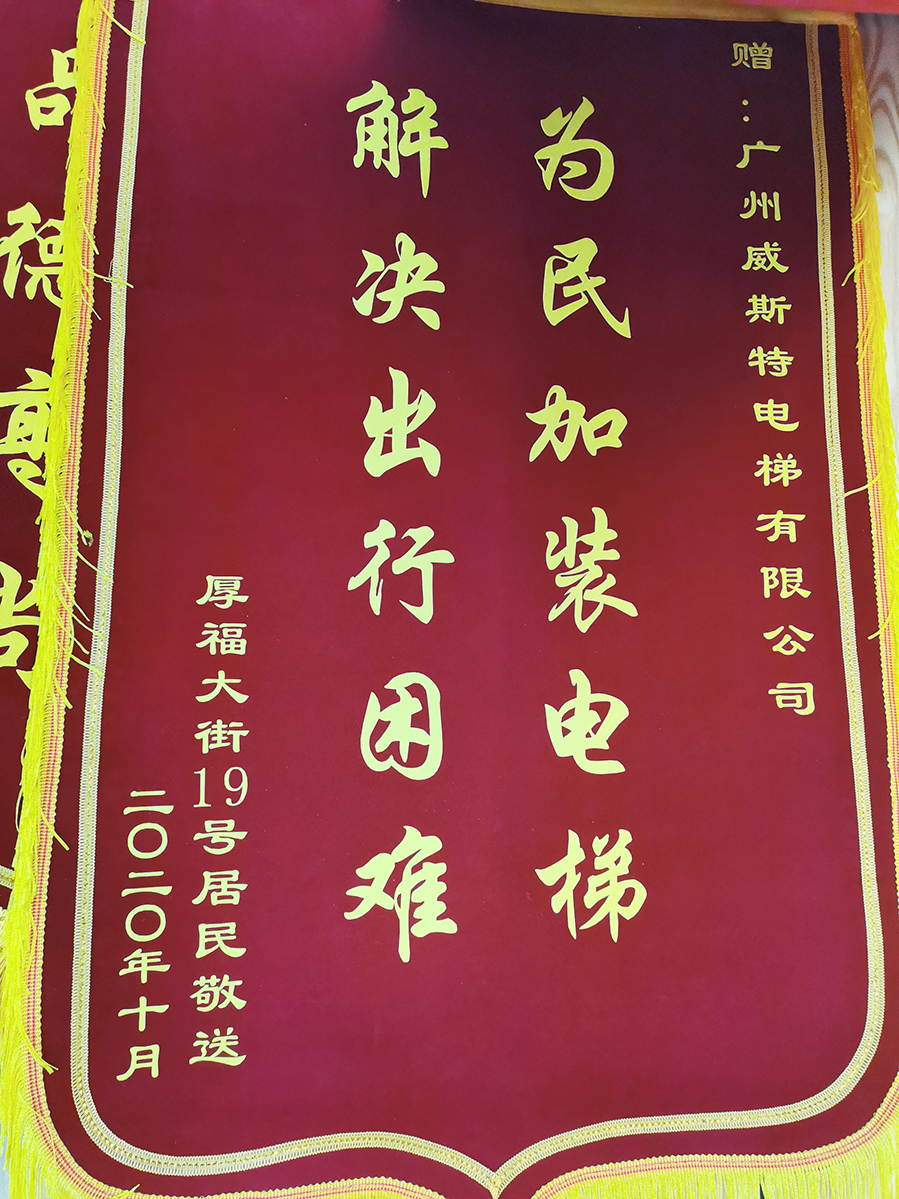 赠：广州威斯特电梯有限公司
为民加装电梯
解决出行困难
厚福大街19号居民敬送
二〇二〇年十月
品德高尚